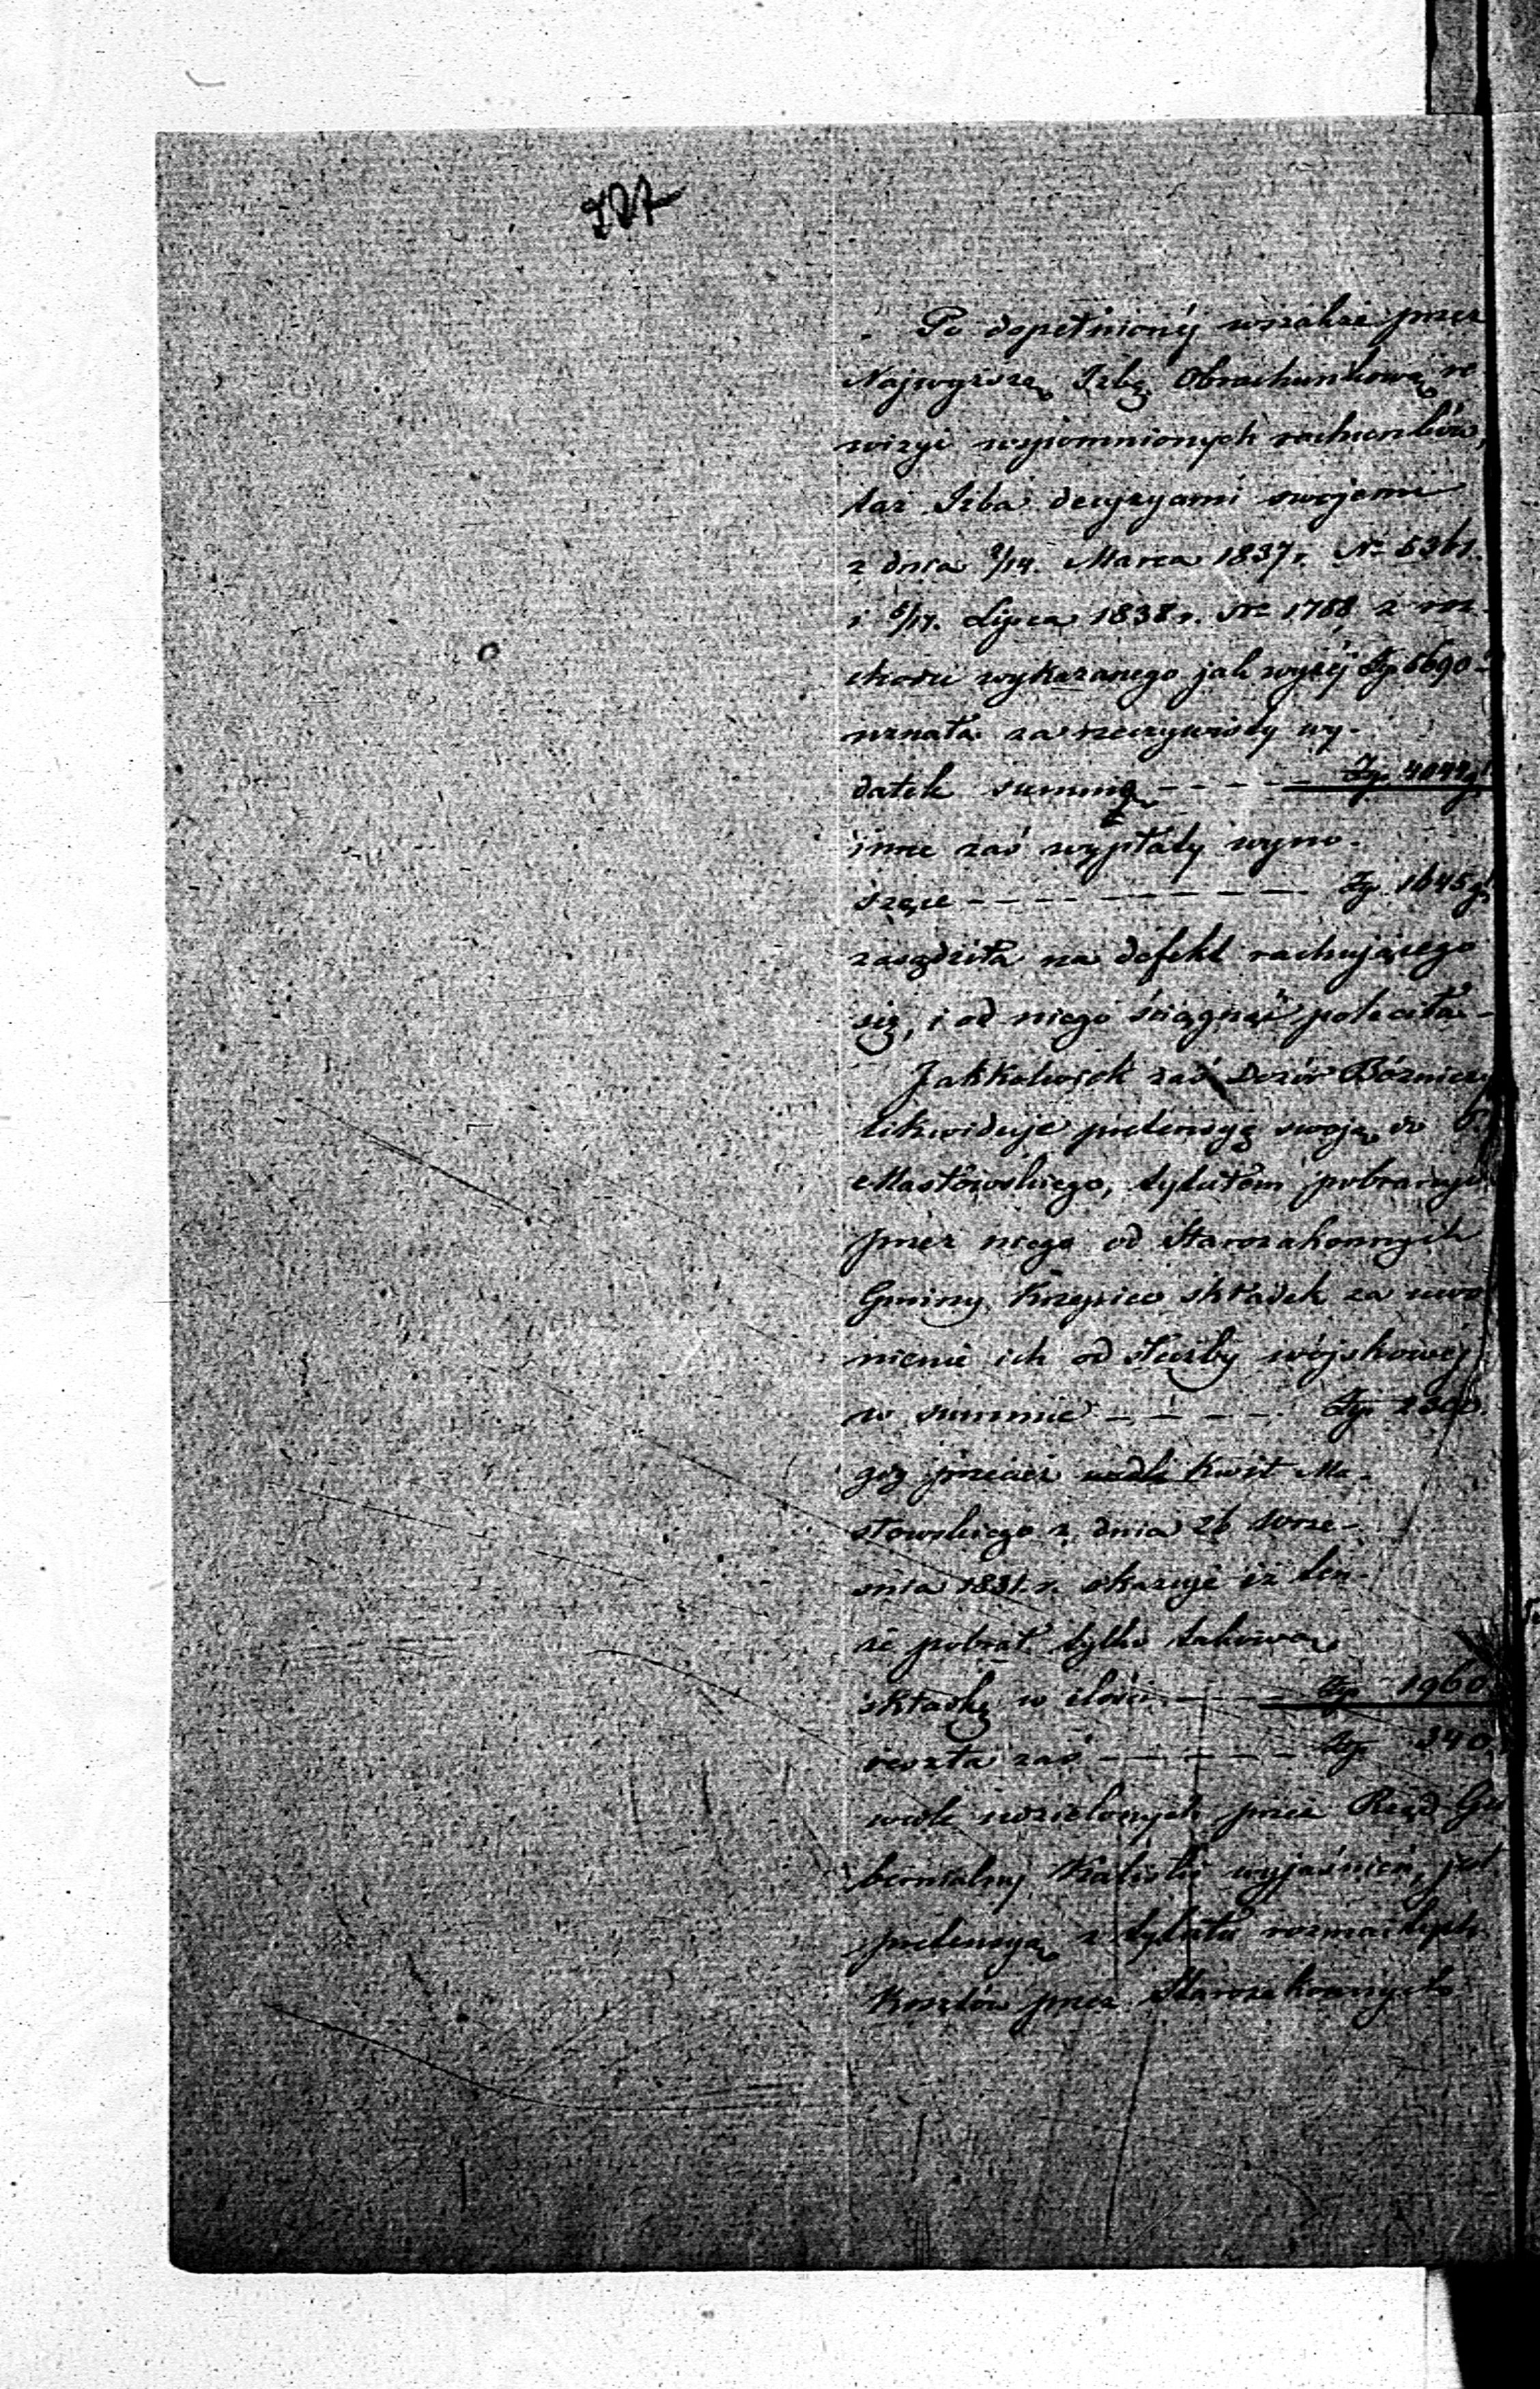 Po dopełnionéj wszakże przez
Najwyższą Izbę Obrachunkową re
wizyi wspomnionych rachunków,
taż Izba decyzyami swojemi
z dnia 2/14. Marca 1837 r. Nº 5361.
i 5/17. Lipca 1838 r. Nº 1788 z roz
chodu wykazanego jak wyżéj Zp 5690
uznała za rzeczywisty wy-
datek summę - - - - Zp. 4044 g
inne zaś wypłaty wyno-
szące - - - - - - - - - Zp. 1645 g
zasądziła na defekt rachującego
się, i od niego ściągnąć poleciła -
Jakkolwiek zaś Dozór Bóżniczy
likwiduje pretensyą swoją do
Masłowskiego, tytułem pobranych
przez niego od Starozakonnych
Gminy Krzepice składek za uwol
nienie ich od służby wojskowéj
w summie - - - - - Zp 2300.
gdy przecież kwit Ma-
słowskiego z dnia 26 Wrze-
śnia 1831 r. okazuje iż ten-
że pobrał tylko takową
składkę w ilości - - - - Zp 1960
reszta zaś - - - - - - Zp 340
wedle udzielonych przez Rząd Gu
bernialny Kaliski wyjaśnień, jest
pretensyą z tytułu rozmaitych
kosztów przez Starozakonnych